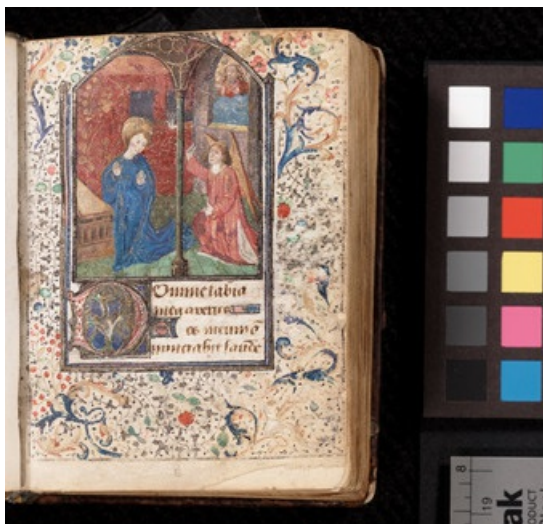 Domine labia
mea aperies
et os meum
annuntiabit laudē
8
19
ak
ODUCT